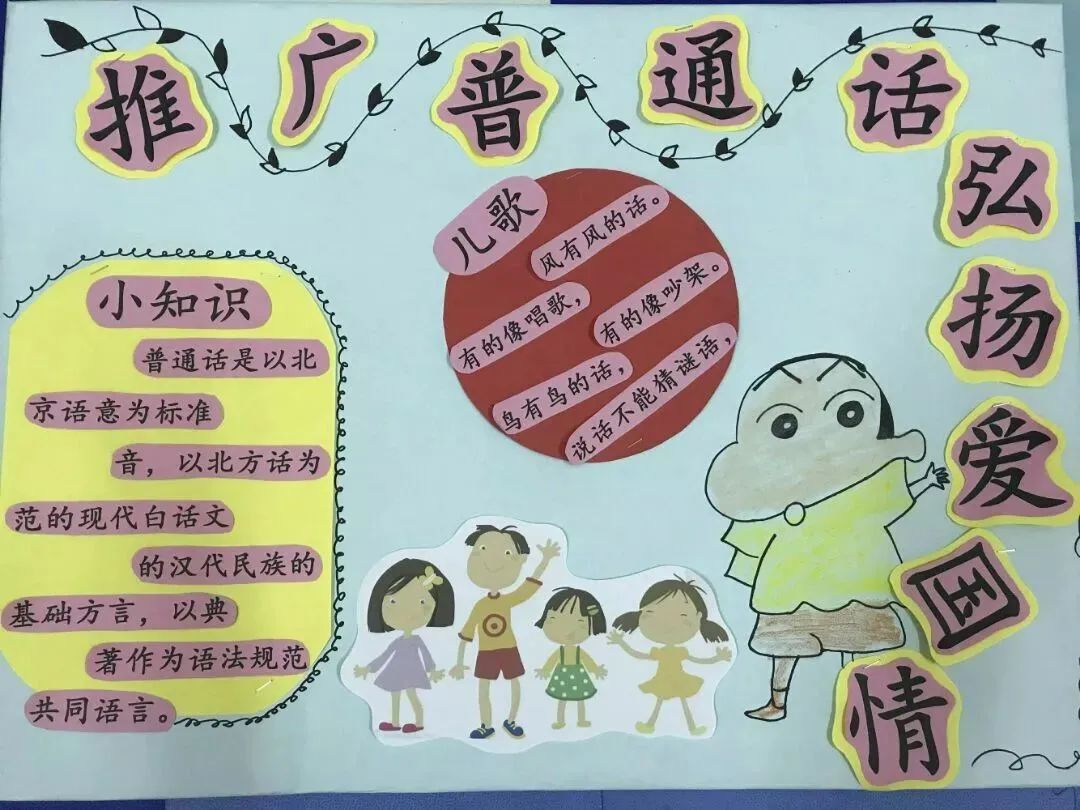 推广普通话
弘扬爱国情
小知识
普通话是以北
京语意为标准
音，以北方话为
范的现代白话文
的汉代民族的
基础方言，以典
著作为语法规范
共同语言。
儿歌
风有风的话。
有的像唱歌，
有的像吵架。
鸟有鸟的话，
说话不能猜谜语，